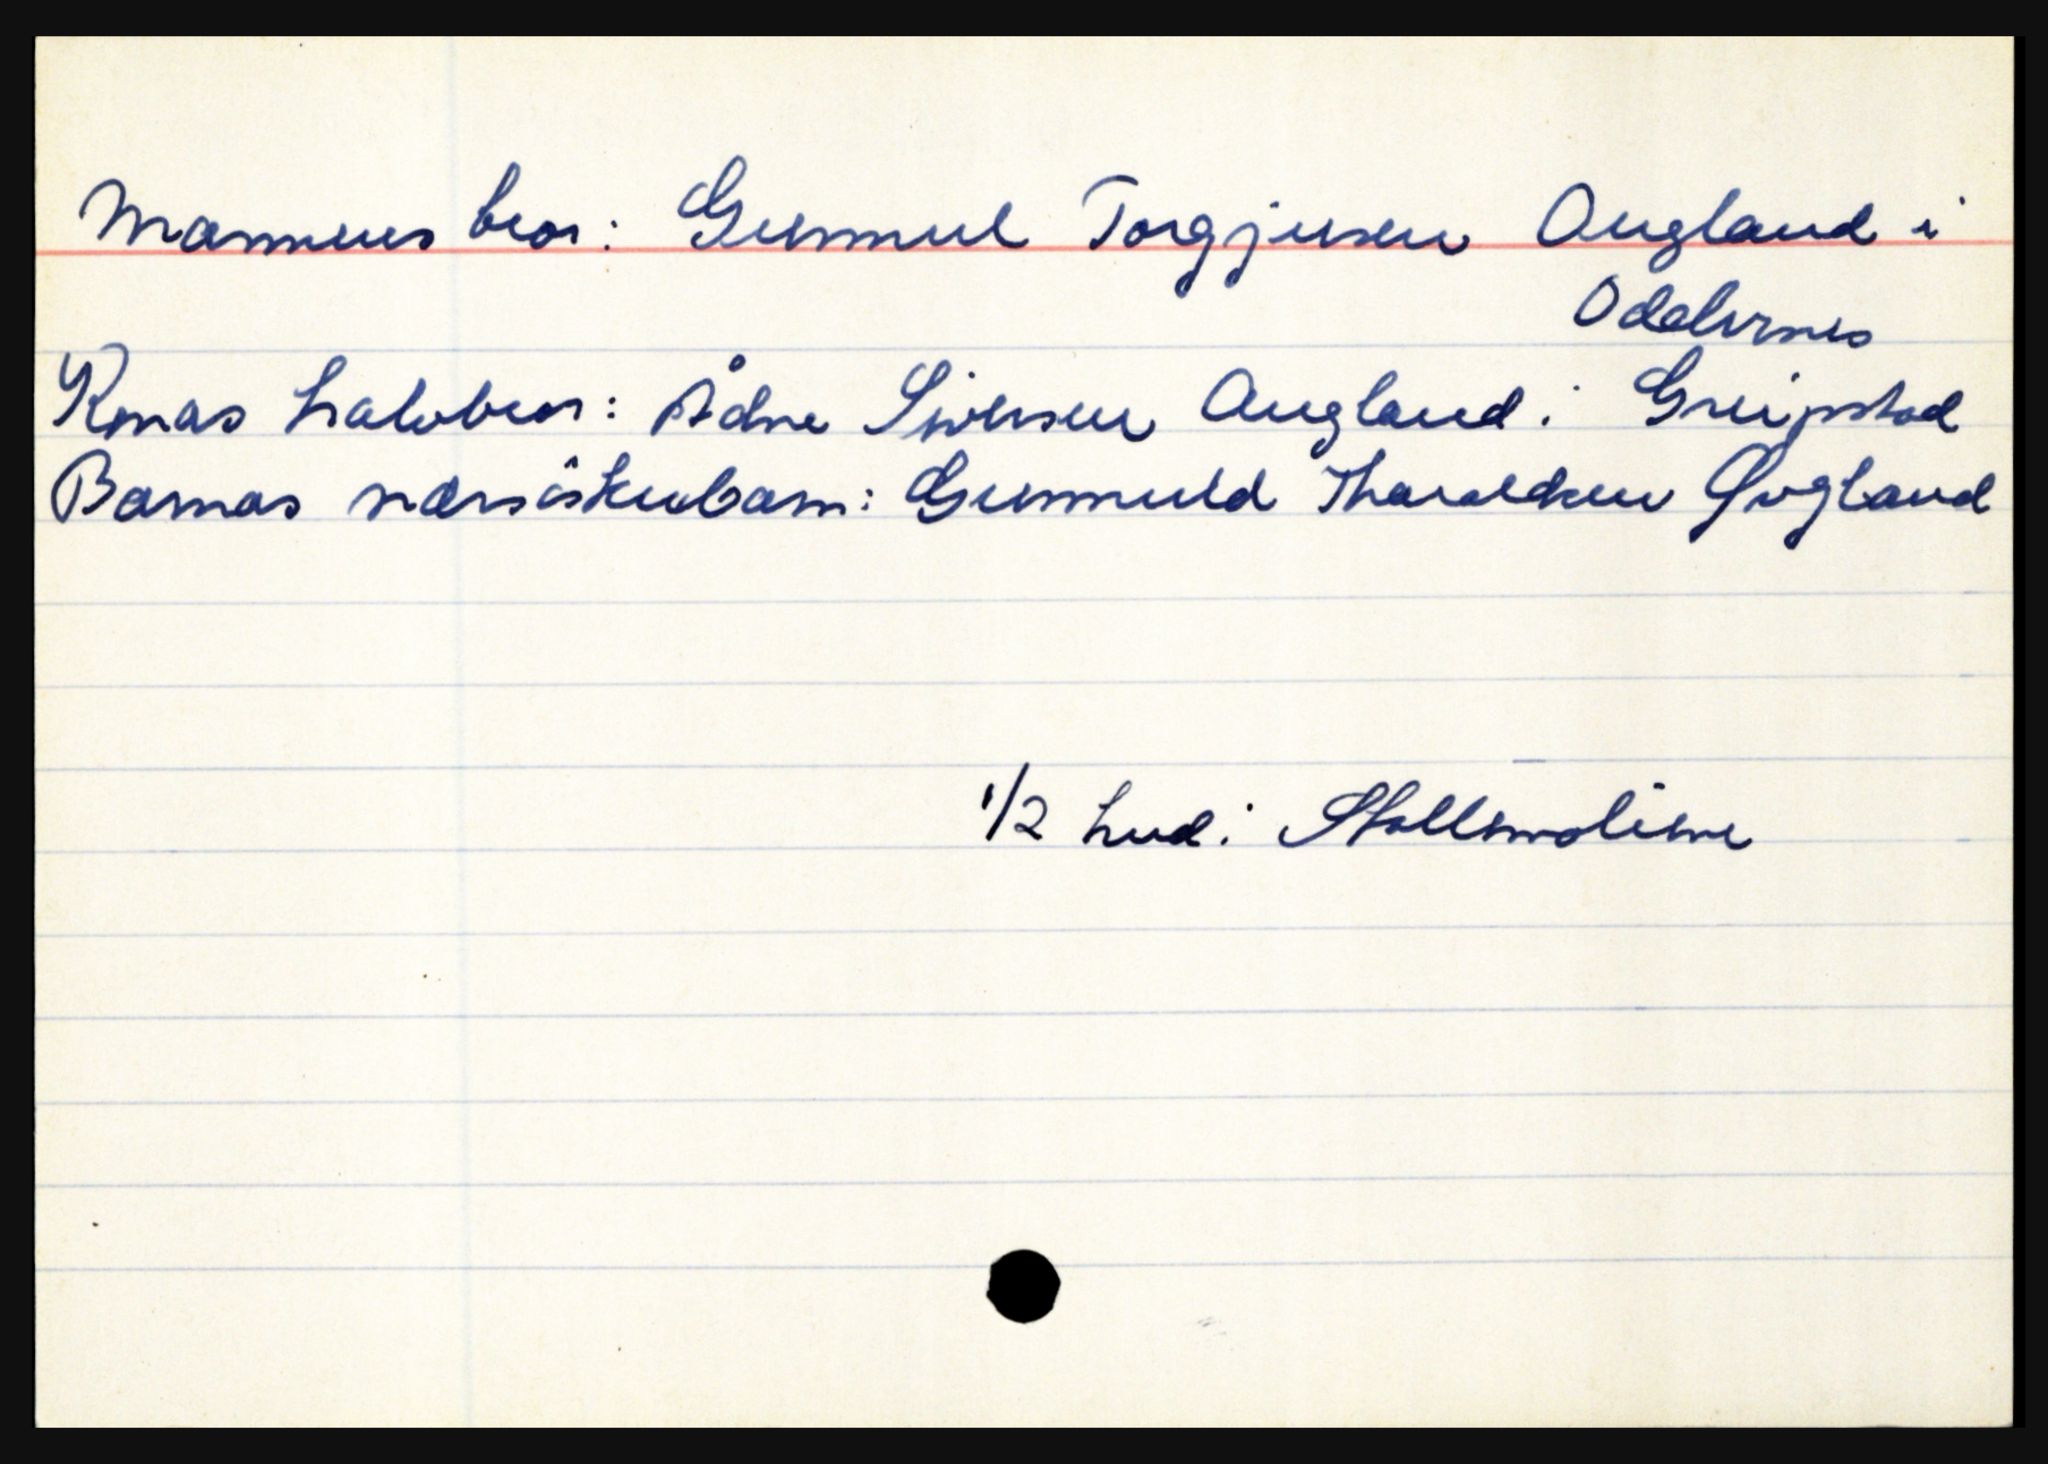 Mannens bror: Gunnul Torgjusen Augland i
Oddernes
Konas halvbror: Ådne Siversen Augland i Greipstad
Barnas nærsöskubarn: Gunnuld Tharaldsen Øvgland
1/2 hud i Stallemoline